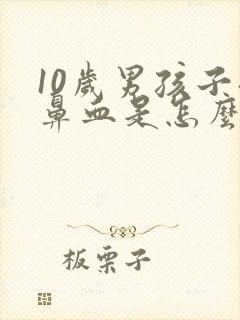 10歲男孩子
鼻血是怎麼
板栗子